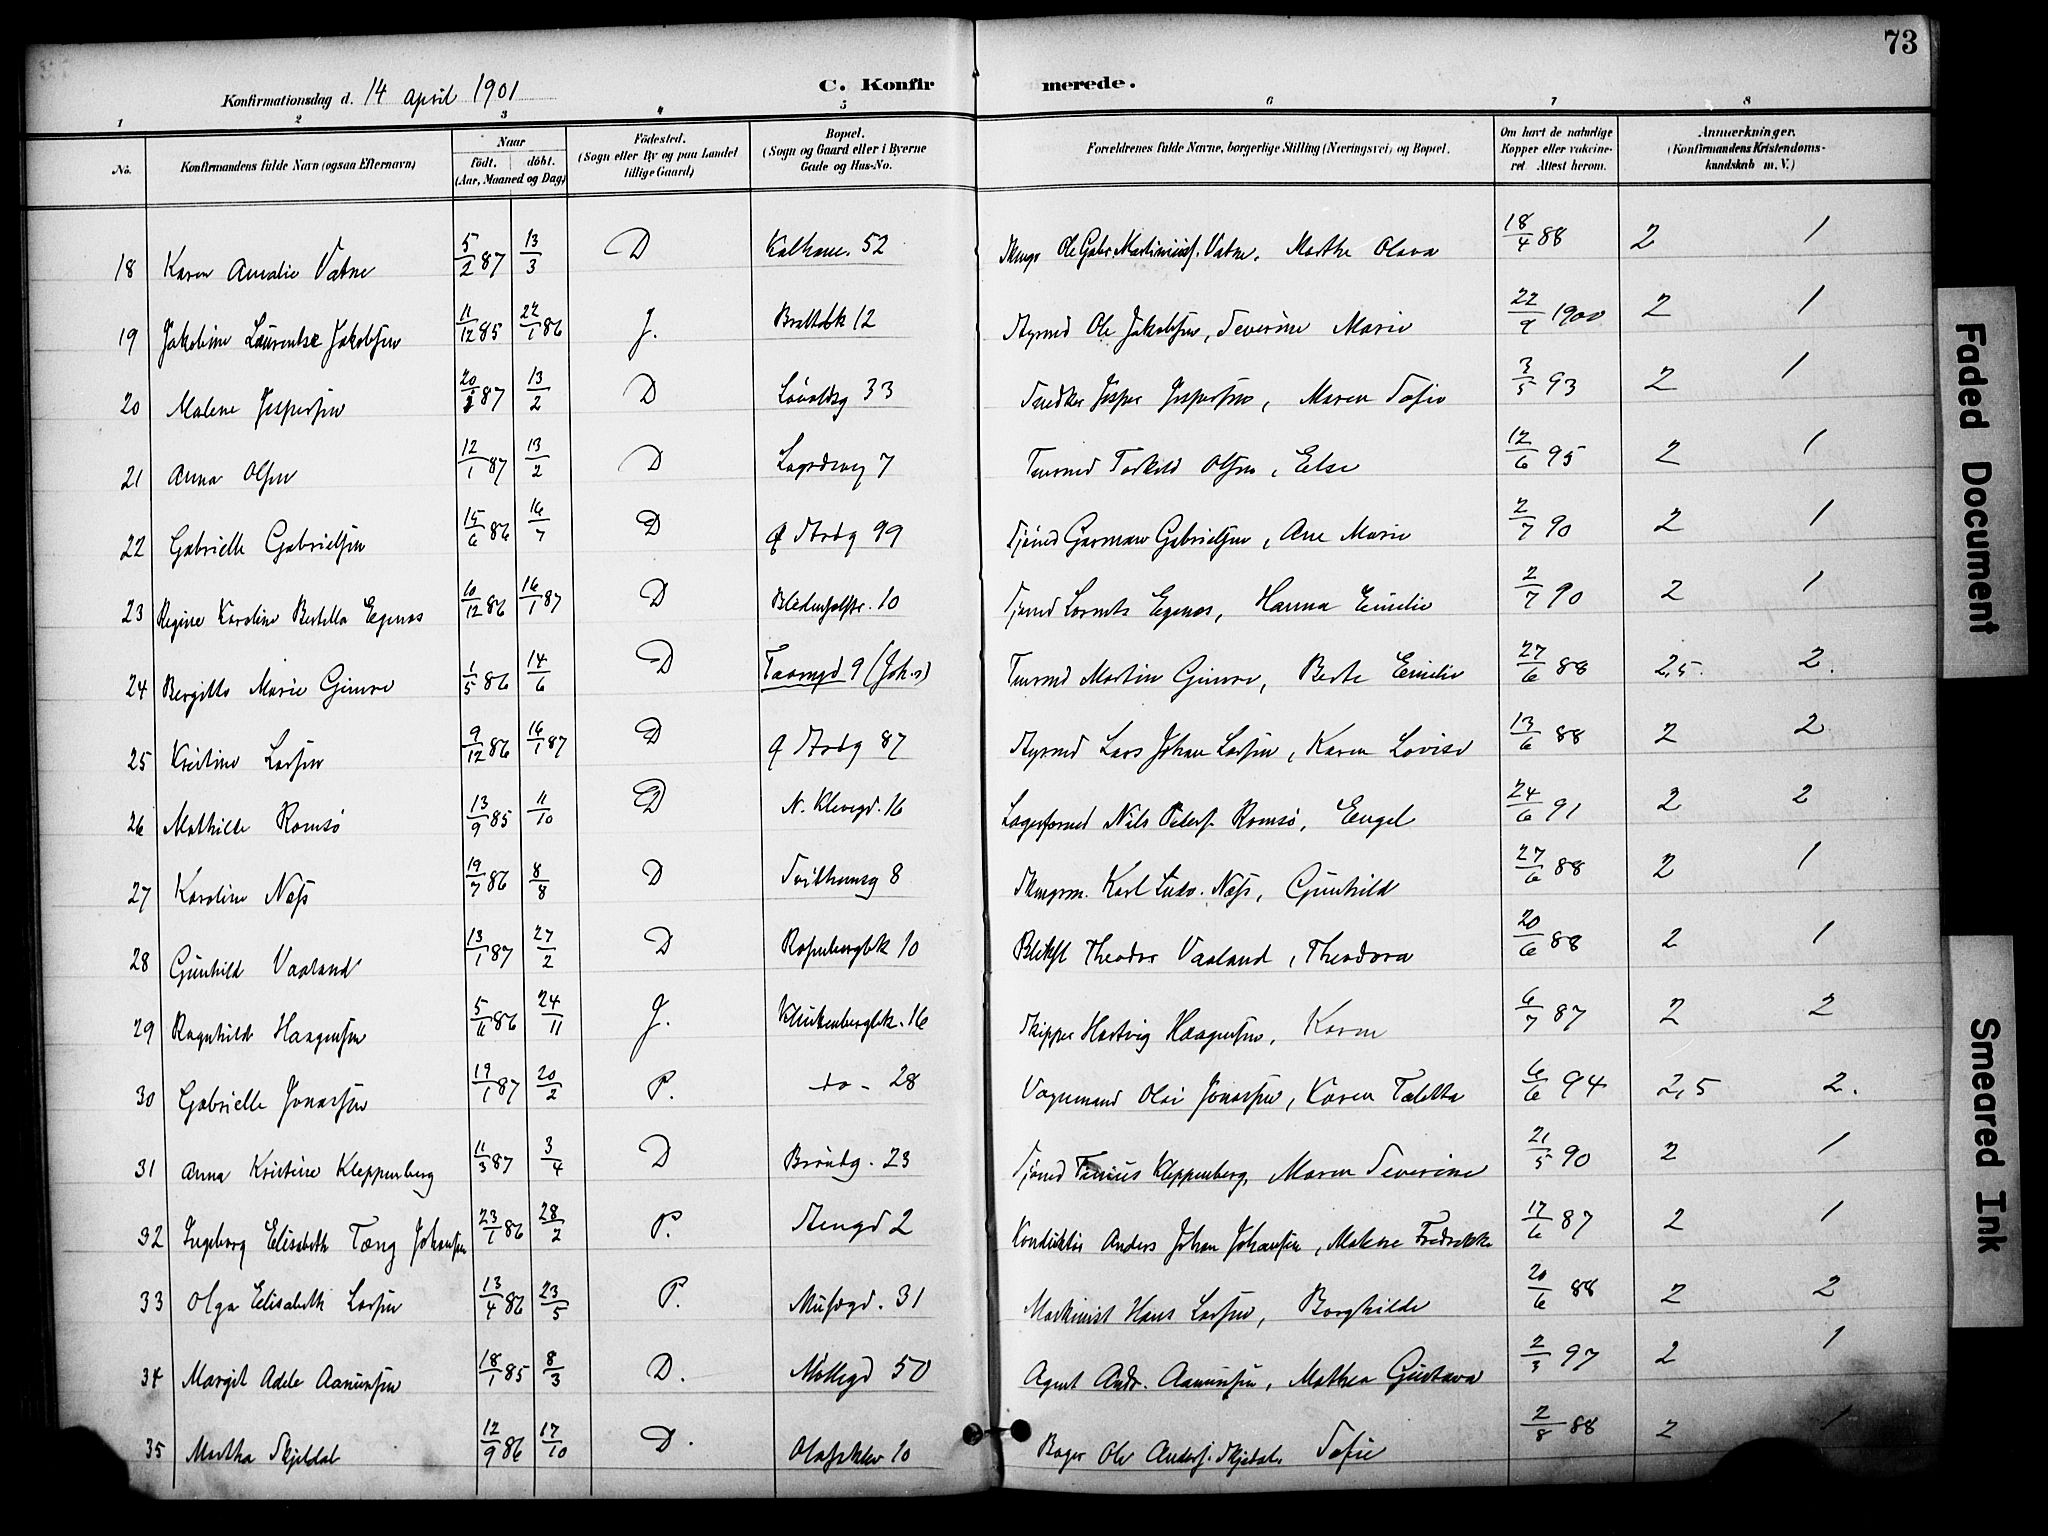 73
Konfirmationsdag d. 14 April 1901 C. Konfirmerede.
1 2 3 4 5 6 7 8
No. Konfirmandens fulde Navn (ogsaa Efternavn) Naar født. døbt. (Aar, Maaned og Dag) Fødested. (Sogn eller By og paa Landet tillige Gaard) Bopæl. (Sogn og Gaard eller i Byerne Gade og Hus-No. Forældrenes fulde Navne, borgerlige Stilling (Næringsvei) og Bopæl. Om havt de naturlige Kopper eller vaccineret Attest herom. Anmærkninger. (Konfirmandens Kristendomskundskab m. V.)
18 Karen Amalie Vatne 5/2 87 13/3 D Kalham. 52 Ole Gabr. Vatne, Marthe Olava 18/4 88 2 1
19 Jakobine Laurentse Jakobsen 11/12 85 22/1 86 J. Bratbk 12 Styrmd Ole Jakobsen, Severine Marie 22/9 1900 2 1
20 Malene Jespersen 20/1 87 13/2 D Løvoldsg 33 Snedker Jesper Jespersen, Maren Sofie 3/5 93 2 1
21 Anna Olsen 12/1 87 13/2 D 7 Torkild Olsen, Else 12/6 95 2 1
22 Gabrielle Gabrielsen 15/6 86 16/7 D 99 Sjømd Garman Gabrielsen, Ane Marie 2/7 90 2 1
23 Regine Karoline Bertella Egenes 10/12 86 16/1 87 D 10 Sjømd Egenes, Hanna Emilie 2/7 90 2 1
24 Bergitte Marie Gimre 1/5 86 14/6 D Taarngd 9 Martin Gimre, Berte Emilie 27/6 88 2,5. 2.
25 Kristine Larsen 9/12 86 16/1 87 D 87 Styrmd Lars Johan Larsen, Karen Lovise 13/6 88 2 2
26 Mathilde Romsø 13/9 85 11/10 D N. Klevegd. 16 Lagerformd Nils Peders. Romsø, Engel 24/6 91 2 2
27 Karoline Næss 19/7 86 8/8 D 8 Karl Ludv. Næss, Gunhild 27/6 88 2 1
28 Gunhild Vaaland 13/1 87 27/2 D Rosenbergbk 10 Theodor Vaaland, Theodora 20/6 88 2 1
29 Ragnhild Haagensen 5/6 86 24/11 J. Klinkenbergbk. 16 Skipper Hartvig Haagensen, Karen 6/7 87 2 2
30 Gabrielle Jonassen 19/1 87 20/2 P. - do - 28 Vognmand Olai Jonassen, Karen Taletta 6/6 94 2,5 2.
31 Anna Kristine Kleppenberg 11/3 87 3/4 D Brøndg. 23 Sjømd Kleppenberg, Maren Severine 21/5 90 2 1
32 Ingeborg Elisabeth Tæng Johansen 23/1 86 28/2 P. Stengd 2 Konduktør Anders Johan Johansen, Malene Fredrikke 17/6 87 2 1
33 Olga Elisabeth Larsen 13/4 86 23/5 P. Musægd. 31 Maskinist Hans Larsen, Borghilde 20/6 88 2 2
34 Margit Adele Aanensen 18/1 85 8/3 D. Møllegd 50 Agent Andr. Aanensen, Mathea Gustava 2/3 97 2 1
35 Martha Skjeldal 12/9 86 17/10 D. Olafsklev 10 Bager Ole Anders. Skjeldal, Sofie 2/8 88 2 1
Faded Document
Smeared Ink